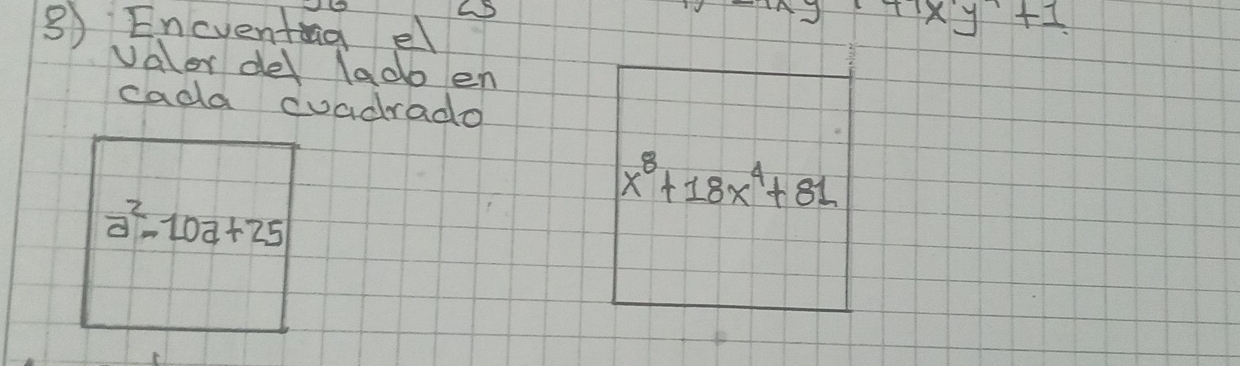 3) Encuentra el
valor del lado en
cada cuadrado
a²-10a+25
x⁸+18x⁴+81